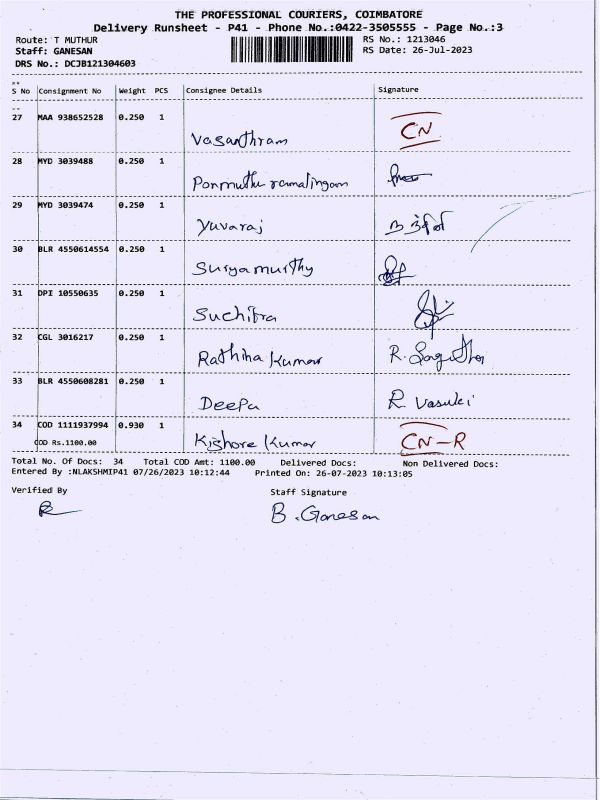 THE PROFESSIONAL COURIERS, COIMBATORE
Delivery Runsheet - P41 - Phone No.:0422-3505555 - Page No.:3
Route: T MUTHUR RS No.: 1213046
Staff: GANESAN RS Date: 26-Jul-2023
DRS No.: DCJB121304603
S No Consignment No Weight PCS Consignee Details Signature
27 MAA 938652528 0.250 1 Vasanthram CN
28 MYD 3039488 0.250 1 Ponmuthu ramalingam
29 MYD 3039474 0.250 1 Yuvaraj நந்தினி
30 BLR 4550614554 0.250 1 Suryamurthy
31 DPI 10550635 0.250 1 Suchitra
32 CGL 3016217 0.250 1 Rathina Kumar R.
33 BLR 4550608281 0.250 1 Deepa R. Vasuki
34 COD 1111937994 0.930 1 Kishore Kumar CN-R
COD Rs.1100.00
Total No. Of Docs: 34 Total COD Amt: 1100.00 Delivered Docs: Non Delivered Docs:
Entered By :NLAKSHMIP41 07/26/2023 10:12:44 Printed On: 26-07-2023 10:13:05
Verified By Staff Signature
B. Ganesan